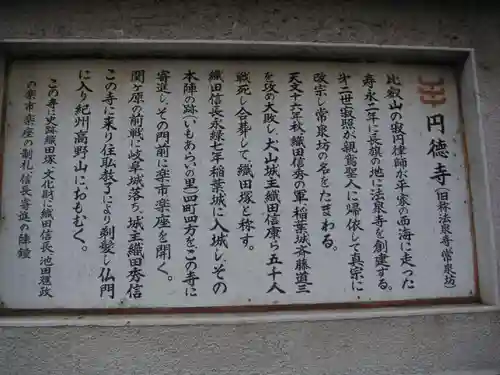 円徳寺(旧称法泉寺常泉坊)
比叡山の寂円律師が平家の西海に走った
寿永二年に長旗の地に法泉寺を創建する。
才二世寂照が親鸞聖人に帰依して真宗に
改宗し常泉坊の名をたまわる。
天文十六年秋織田信秀の軍、稲葉城斉藤道三
を攻め大敗し、犬山城主織田信康ら五千人
戦死し合葬して、織田塚と称す。
織田信長永禄七年稲葉城に入城し、その
本陣の跡(いもあらいの里)四町四方をこの寺に
寄進し、その門前に楽市楽座を開く。
関ヶ原の前戦に岐阜城落ち、城主織田秀信
この寺に来り住職教了により剃髪し仏門
に入り紀州高野山におもむく。
この寺に史跡織田塚、文化財に織田信長、池田輝政
の楽市楽座の制札、信長寄進の陣鐘